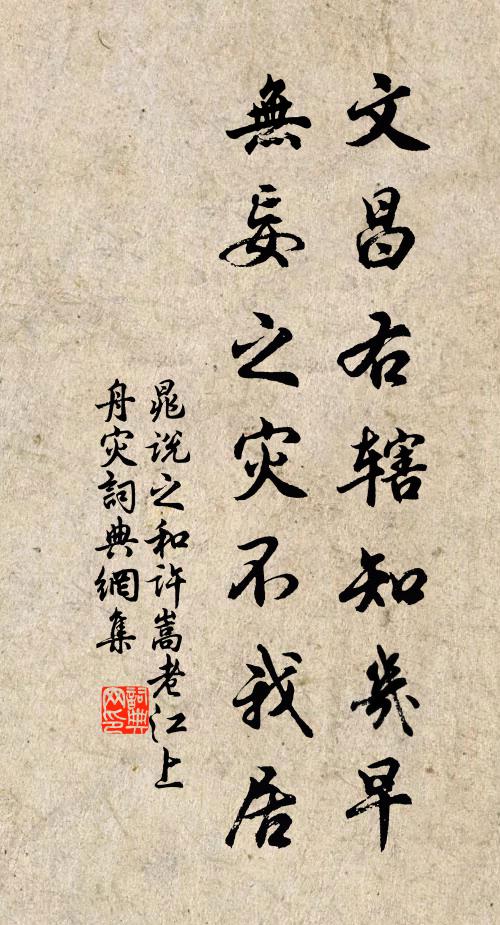 文昌右辖知几早
無妄之灾不我居
晁说之和许嵩老江上
舟灾詞典網集
詞典网印